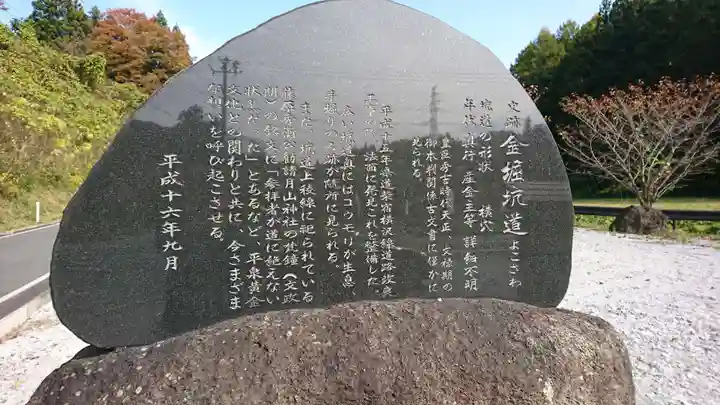 史跡 金堀坑道 よこさわ
坑道の形状 横穴
年代 奥行 産金主等 詳細不明
豊臣秀吉時代天正 文禄期の
御本判関係古文書に僅かに
見られる。
平成十五年県道栗宿横沢線道路改良
工事の際、法面に発見これを整備した。
坑道にはコウモリが生息、
手掘りのノミ跡が随所に見られる。
また、坑道上稜線に祀られている
藤原秀衡公勧請月山神社の梵鐘(文政
期)の銘文に「参拝者が道に絶えない
状態だった」とあるなど、平泉黄金
文化との関わりと共に、今さまざま
な想いを呼び起こさせる。
平成十六年九月